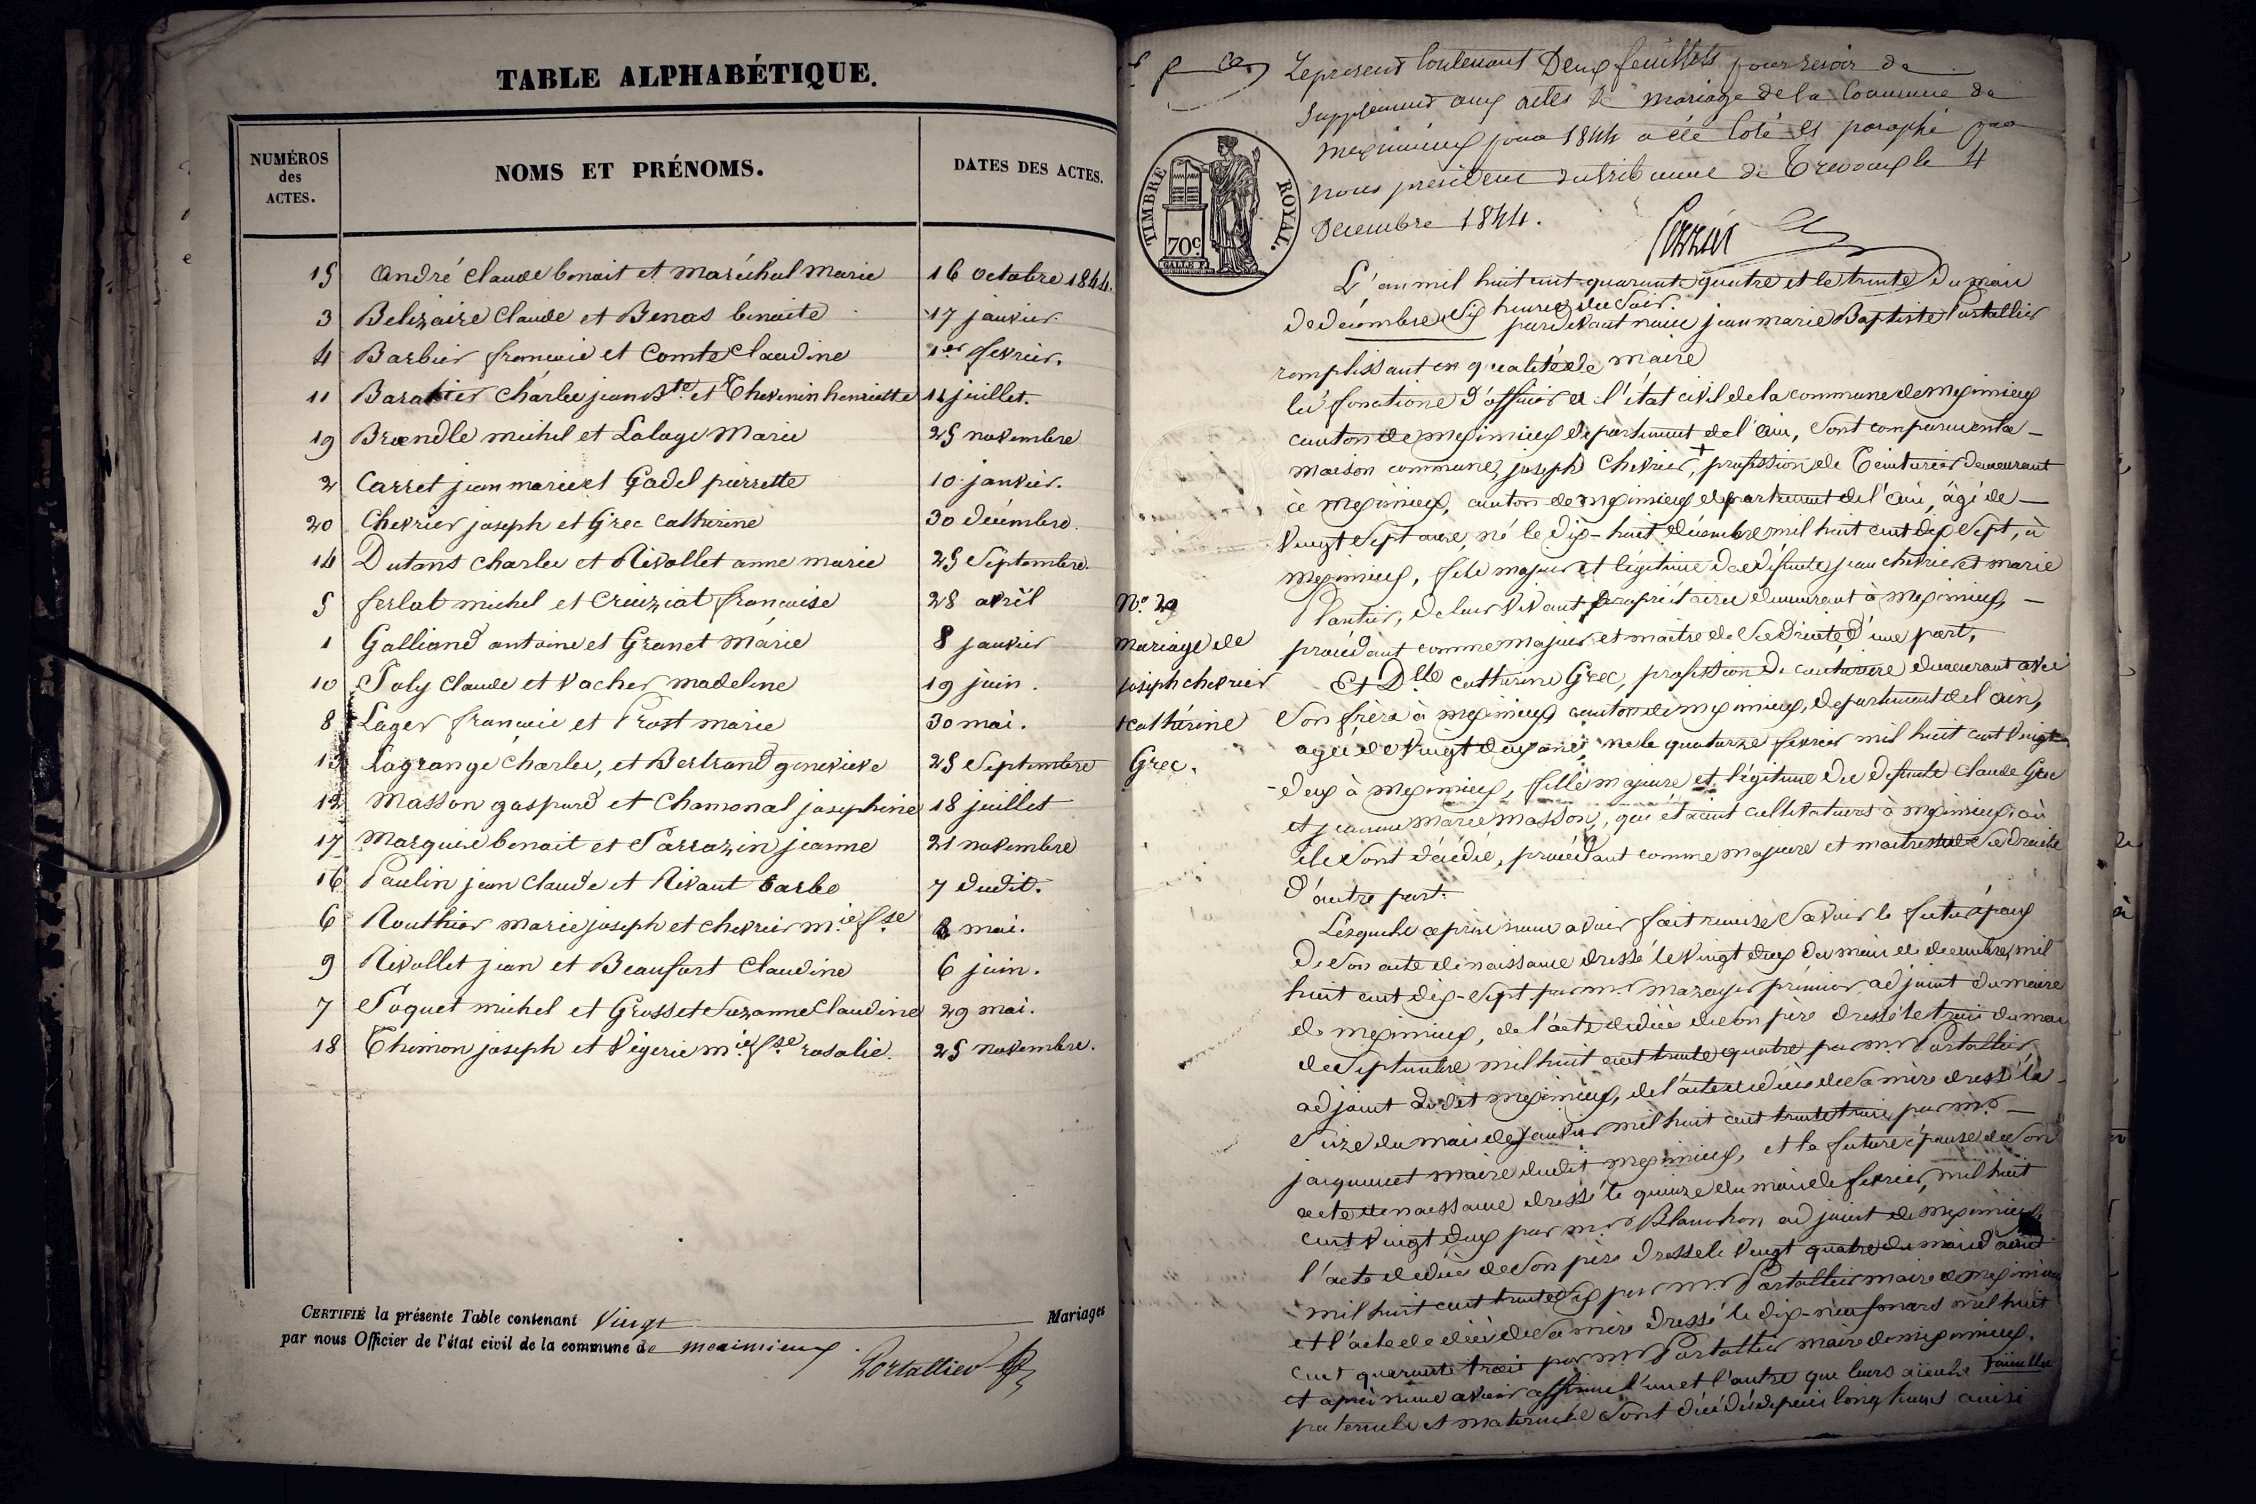 TABLE ALPHABÉTIQUE.
NUMÉROS des ACTES.
NOMS ET PRÉNOMS.
DATES DES ACTES.
15 André Claude benoit et Maréchal Marie 16 octobre 1844.
3 Belizaire Claude et Benas benoite 17 janvier
4 Barbier françois et Comte Claudine 1er fevrier.
11 Baratier Charles jean Bte et Thevenin henriette 11 juillet.
19 Brændle michel et Lalage Marie 25 novembre
2 Carret jean marie et Gadel pierrette 10 janvier.
20 Chevrier joseph et Grec Catherine 30 decembre.
14 Dutans Charles et Rivollet anne marie 25 Septembre
5 ferlat michel et Creuziat françoise 28 avril
1 Galliand antoine et Granet Marie 8 janvier
10 Joly Claude et Vacher madeline 19 juin.
8 Lager françois et Prost marie 30 mai.
13 Lagrange Charles, et Bertrand genevieve 25 Septembre
12 Masson gaspard et Chamonal josephine 18 juillet
17 Marguire benoit et Sarrazin jeanne 21 novembre
16 Paulin jean Claude et Rivaut barbe 7 dudit.
6 Routhier marie joseph et Chevrier mie fse 8 mai.
9 Rivollet jean et Beaufort Claudine 6 juin.
7 Soquet michel et Grosset Suzanne Claudine 29 mai.
18 Thimon joseph et Vegerie mie fse rosalie. 25 novembre.
CERTIFIÉ la présente Table contenant Vingt Mariages
par nous Officier de l'état civil de la commune de meximieux
Portallier
Le présent Contenant Deux feuillets pour servir de
Supplement aux actes de mariage de la Commune de
Meximieux pour 1844 a été Coté et paraphé par
nous président du tribunal de Trevoux le 4
Decembre 1844.
TIMBRE ROYAL.
70c
L'an mil huit cent quarante quatre et le trente du mois
de décembre, six heures du Soir.
pardevant nous jean marie Baptiste Portallier
remplissant en qualité de maire
les fonctions d'officier de l'état civil de la commune de Meximieux
canton de Meximieux departement de l'ain, Sont comparus en la
maison commune, joseph Chevrier, profession de Teinturier demeurant
à Meximieux, canton de Meximieux departement de l'ain, âgé de
Vingt Sept ans, né le dix-huit décembre mil huit cent dix Sept, à
Meximieux, fils majeur et légitime de défunts jean chevrier et marie
Plantier, de leur Vivant propriétaires demeurant à Meximieux
procédant comme majeur et maitre de Ses Droits d'une part,
No 20
Mariage de
joseph chevrier
et Cathérine
Grec.
Et Dlle Catherine Grec, profession de couturiere demeurant avec
Son frère à Meximieux canton de Meximieux, departement de l'ain,
agée de Vingt deux ans, née le quatorze fevrier mil huit cent Vingt
deux à Meximieux, fille majeure et légitime de defunts Claude Grec
et jeanne Marie Masson, qui étaient cultivateurs à Meximieux où
ils Sont décédés, procédant comme majeure et maitresse de Ses droits
D'autre part.
Lesquels après nous avoir fait remise Savoir le futur époux
De Son acte de naissance dressé le Vingt deux du mois de decembre mil
huit cent dix-Sept par mr Mazoyer prémier adjoint du maire
de meximieux, de l'acte de décès de Son père dressé le trois du mois
de Septembre mil huit cent trente quatre par mr Portallier
adjoint dudit Meximieux, de l'acte de décès de Sa mère dressé le
Seize du mois de janvier mil huit cent trente trois par mr
jacquemet maire dudit Meximieux, et la future épouse de Son
acte de naissance dressé le quinze du mois de fevrier, mil huit
cent Vingt deux par mr Blanchon adjoint de Meximieux
l'acte de décès de Son père dressé le Vingt quatre du mois d'aout
mil huit cent trente Six par mr Portallier maire de Meximieux
et l'acte de décès de Sa mère dressé le dix-neuf mars mil huit
cent quarante trois par mr Portallier maire de meximieux.
et après nous avoir affirmé l'un et l'autre que leurs aïeuls
paternels et maternels Sont décédés depuis long tems ainsi